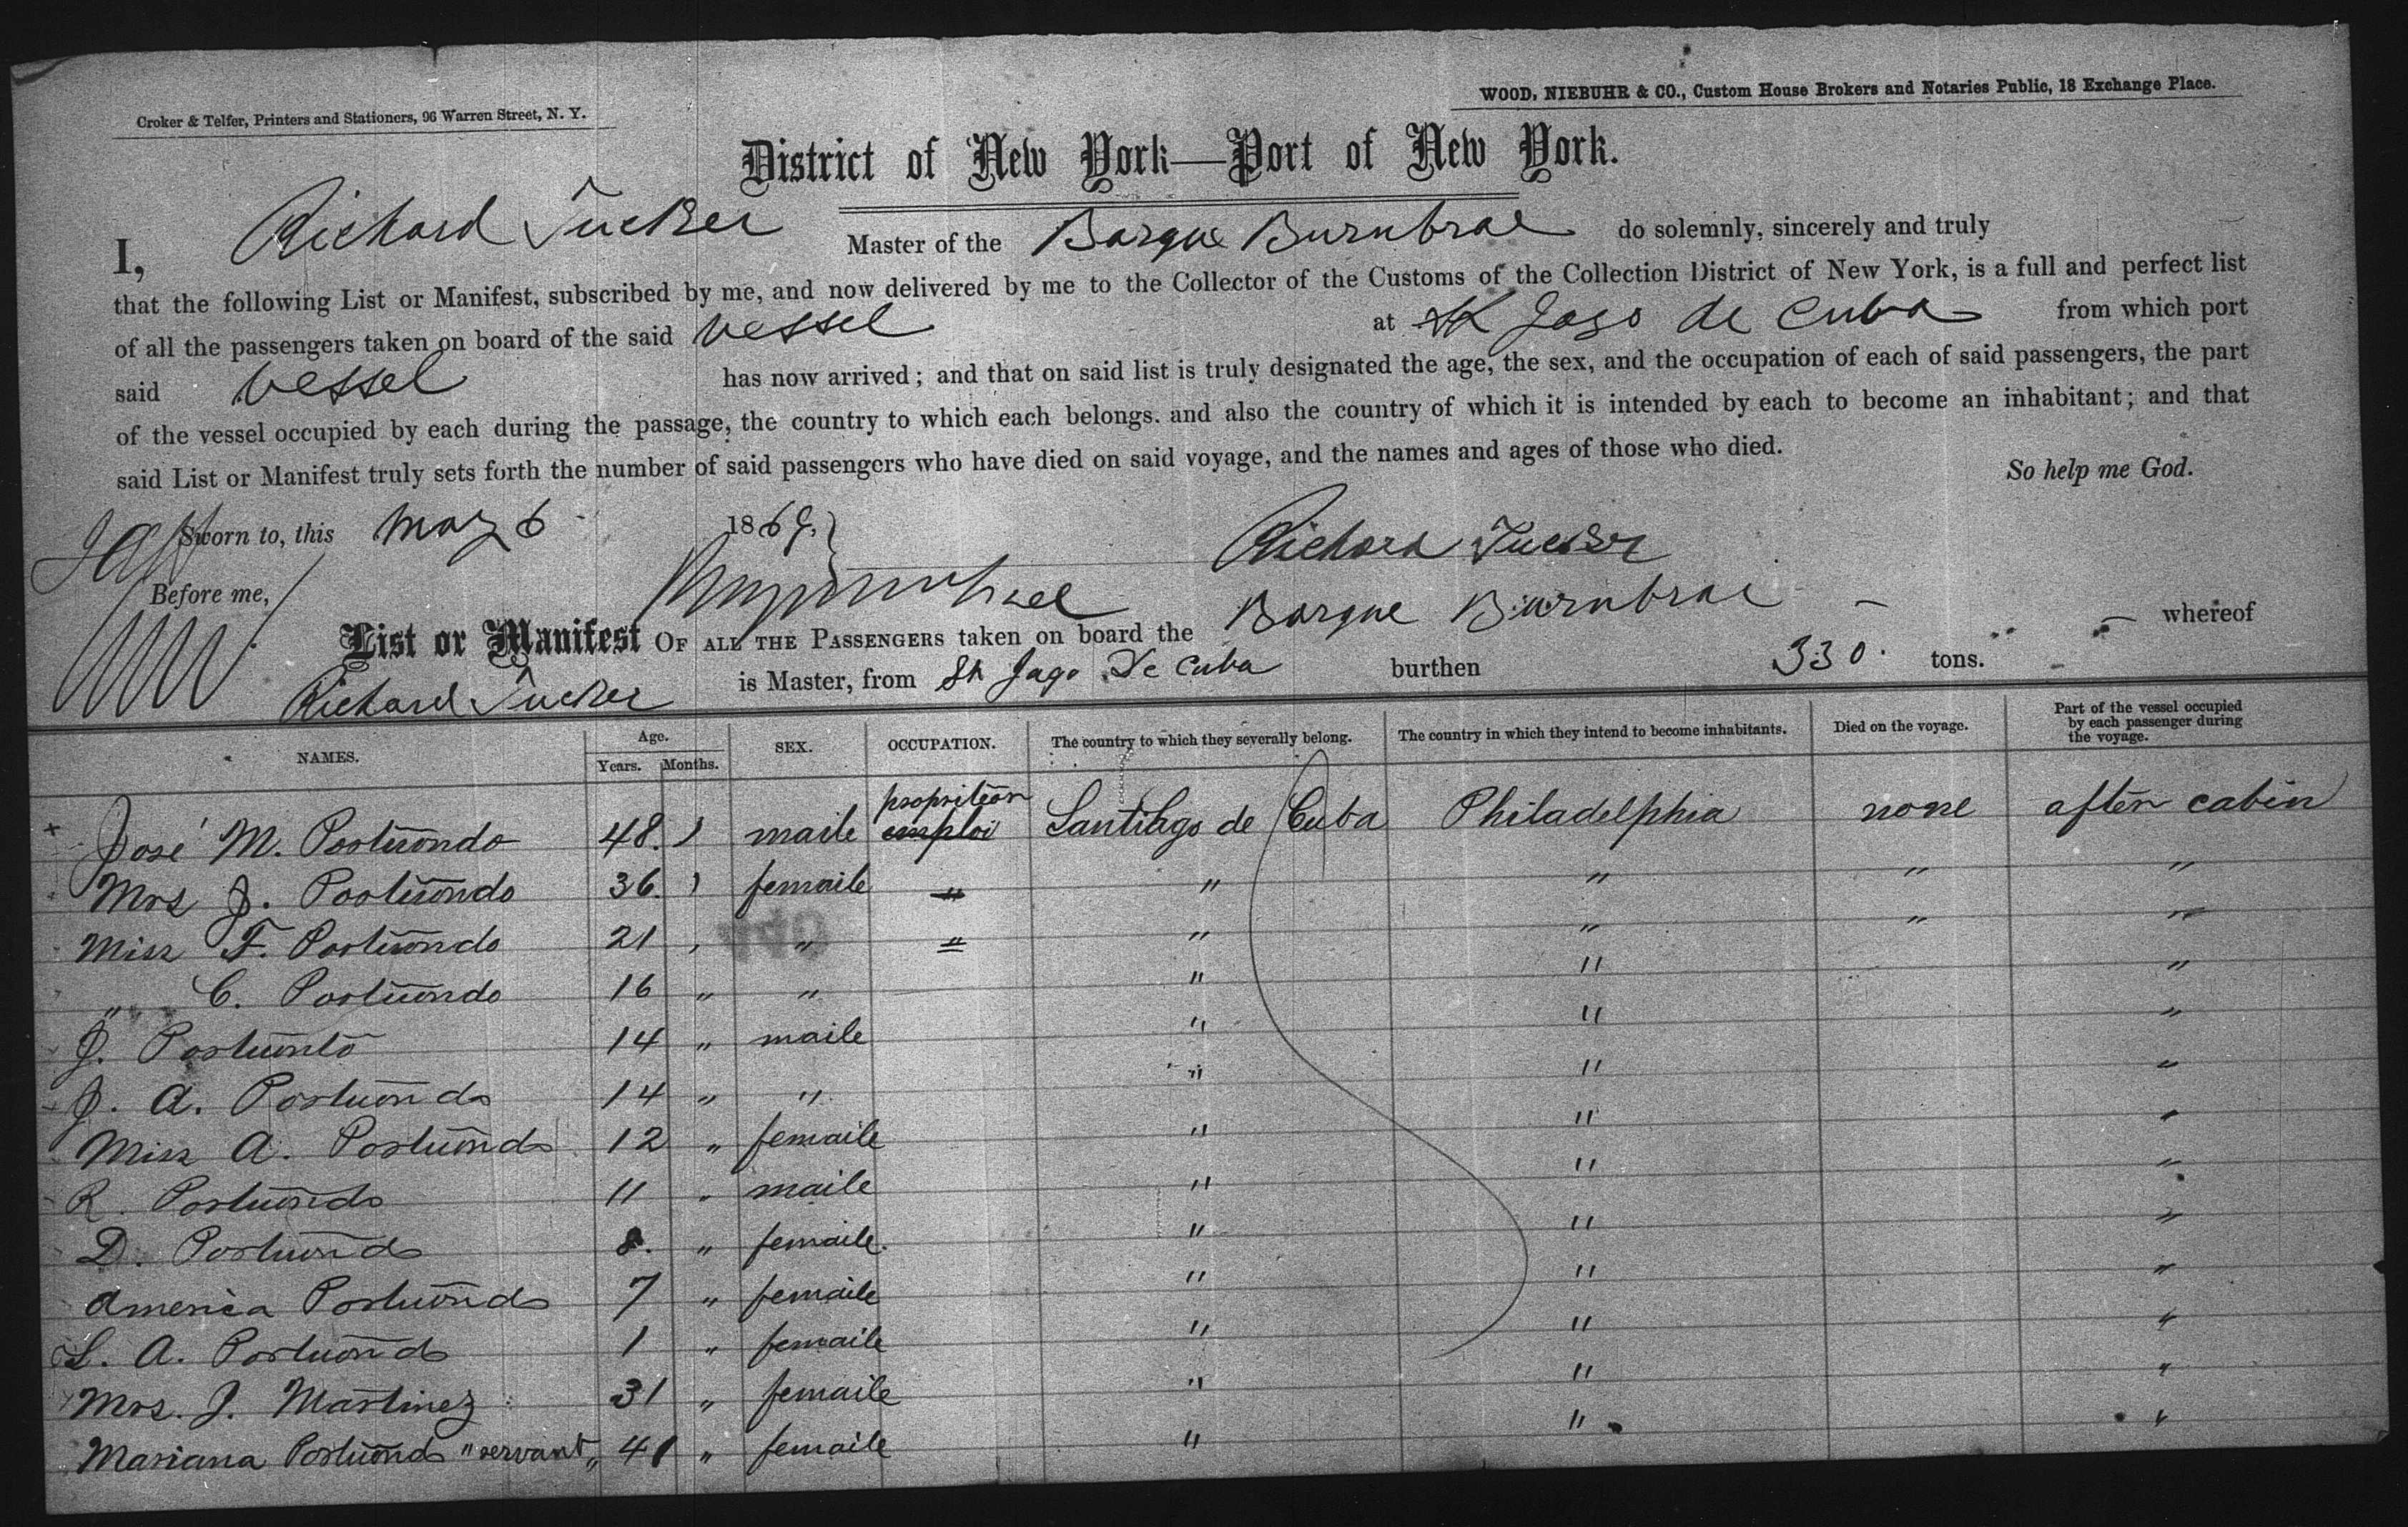 Croker & Telfer, Printers and Stationers, 96 Warren Street, N. Y.
WOOD, NIEBUHR & CO., Custom House Brokers and Notaries Public, 18 Exchange Place.
District of New York—Port of New York.
I, Richard Tucker Master of the Barque Burnbrae do solemnly, sincerely and truly
that the following List or Manifest, subscribed by me, and now delivered by me to the Collector of the Customs of the Collection District of New York, is a full and perfect list
of all the passengers taken on board of the said vessel at St Jago de Cuba from which port
said vessel has now arrived; and that on said list is truly designated the age, the sex, and the occupation of each of said passengers, the part
of the vessel occupied by each during the passage, the country to which each belongs. and also the country of which it is intended by each to become an inhabitant; and that
said List or Manifest truly sets forth the number of said passengers who have died on said voyage, and the names and ages of those who died.
So help me God.
Sworn to, this May 6 1869. Richard Tucker
Before me,
List or Manifest OF ALL THE PASSENGERS taken on board the Barque Burnbrae whereof
Richard Tucker is Master, from St Jago De Cuba burthen 330. tons.
NAMES. Age. Years. Months. SEX. OCCUPATION. The country to which they severally belong. The country in which they intend to become inhabitants. Died on the voyage. Part of the vessel occupied by each passenger during the voyage.
José M. Portuondo 48. maile emploi Santihgo de Cuba Philadelphia none after cabin
Mrs J. Portuondo 36. femaile " " " " "
Miss F. Portuondo 21 " " " " " "
" C. Portuondo 16 " " " " "
J. Portuonto 14 " maile " " "
J. A. Portuondo 14 " " " " "
Miss A. Portuondo 12 " femaile " " "
R. Portuondo 11 " maile " " "
D. Portuondo 8. " femaile. " " "
America Portuondo 7 " femaile " " "
L. A. Portuondo 1 " femaile " " "
Mrs. J. Martinez 31 " femaile " " "
Mariana Portuondo "servant" 41 " femaile " " "